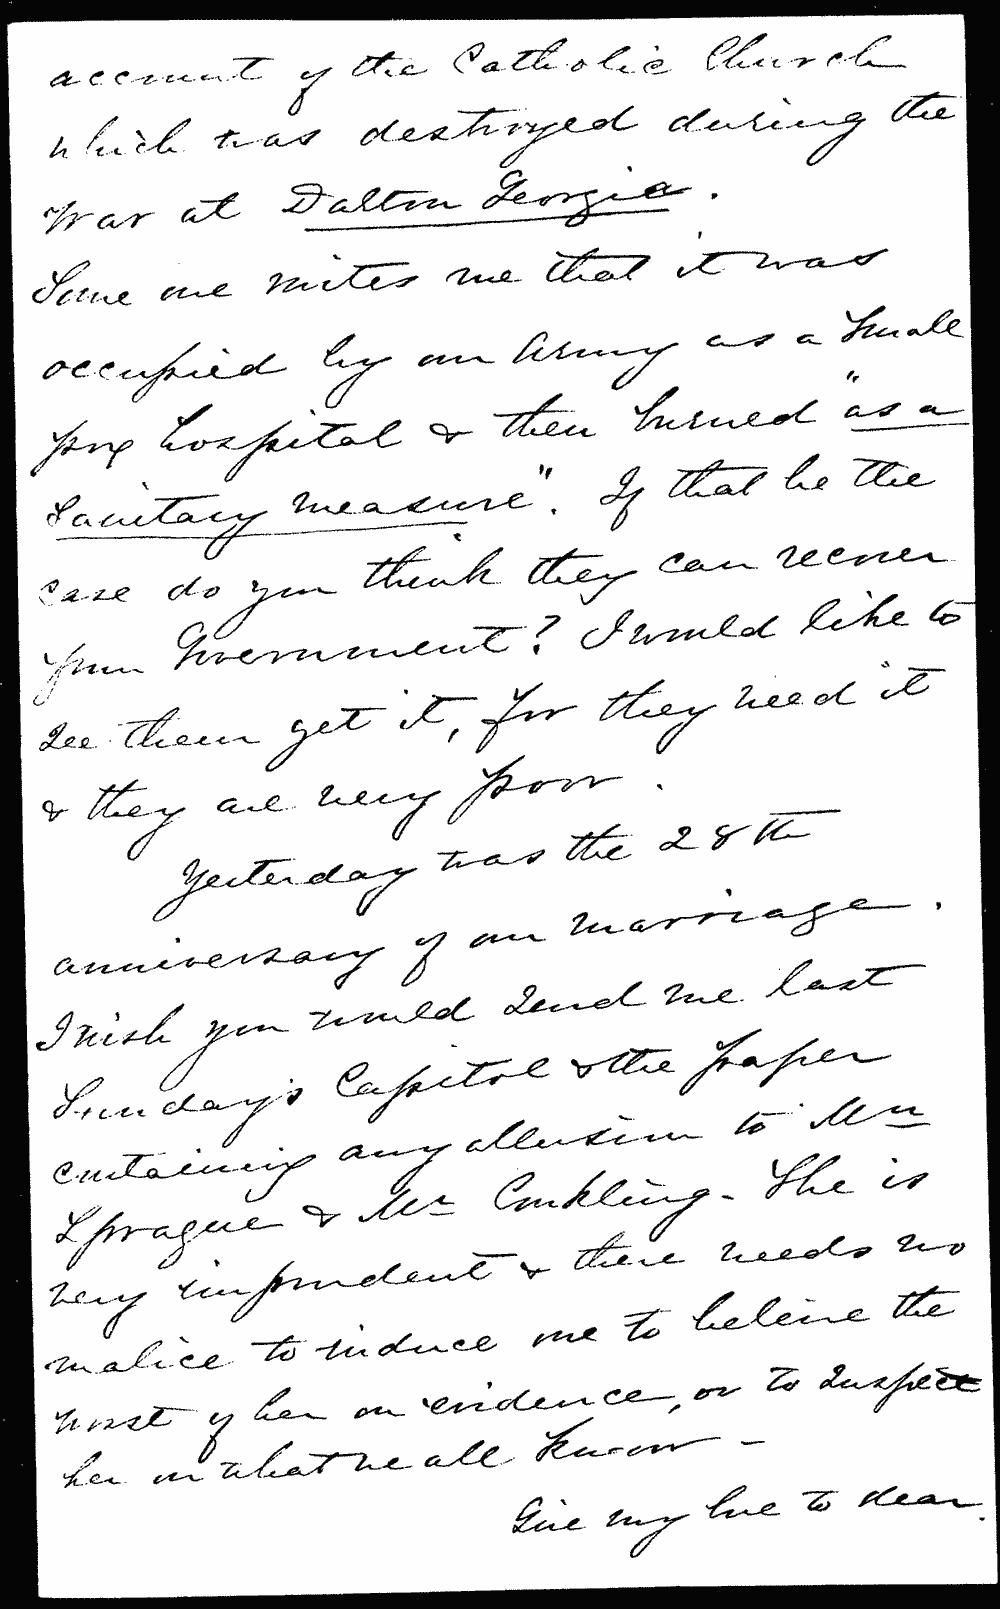 account of the Catholic Church
which was destroyed during the
War at Dalton Georgia.
Some one writes me that it was
occupied by our Army as a Small
pox hospital & then burned "as a
Sanitary measure". If that be the
case do you think they can recover
from Government? I would like to
see them get it, for they need it
& they are very poor.
Yesterday was the 28th
anniversary of our marriage.
I wish you would send me last
Sunday's Capitol & the paper
containing any allusion to Mrs
Sprague & Mr Conkling - She is
very imprudent & there needs no
malice to induce me to believe the
worst of her on evidence, or to suspect
her on what we all know -
Give my love to dear